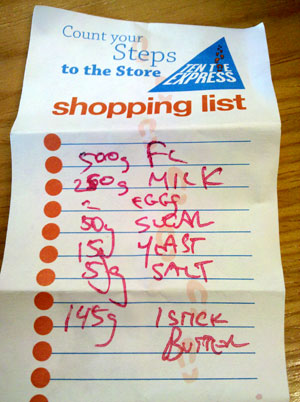 Count your
Steps
to the Store
TEN THE
EXPRESS
shopping list
500g FL
250g MILK
2 EGGS
50g SUGAR
15g YEAST
5g SALT
145g 1 STICK
BUTTER